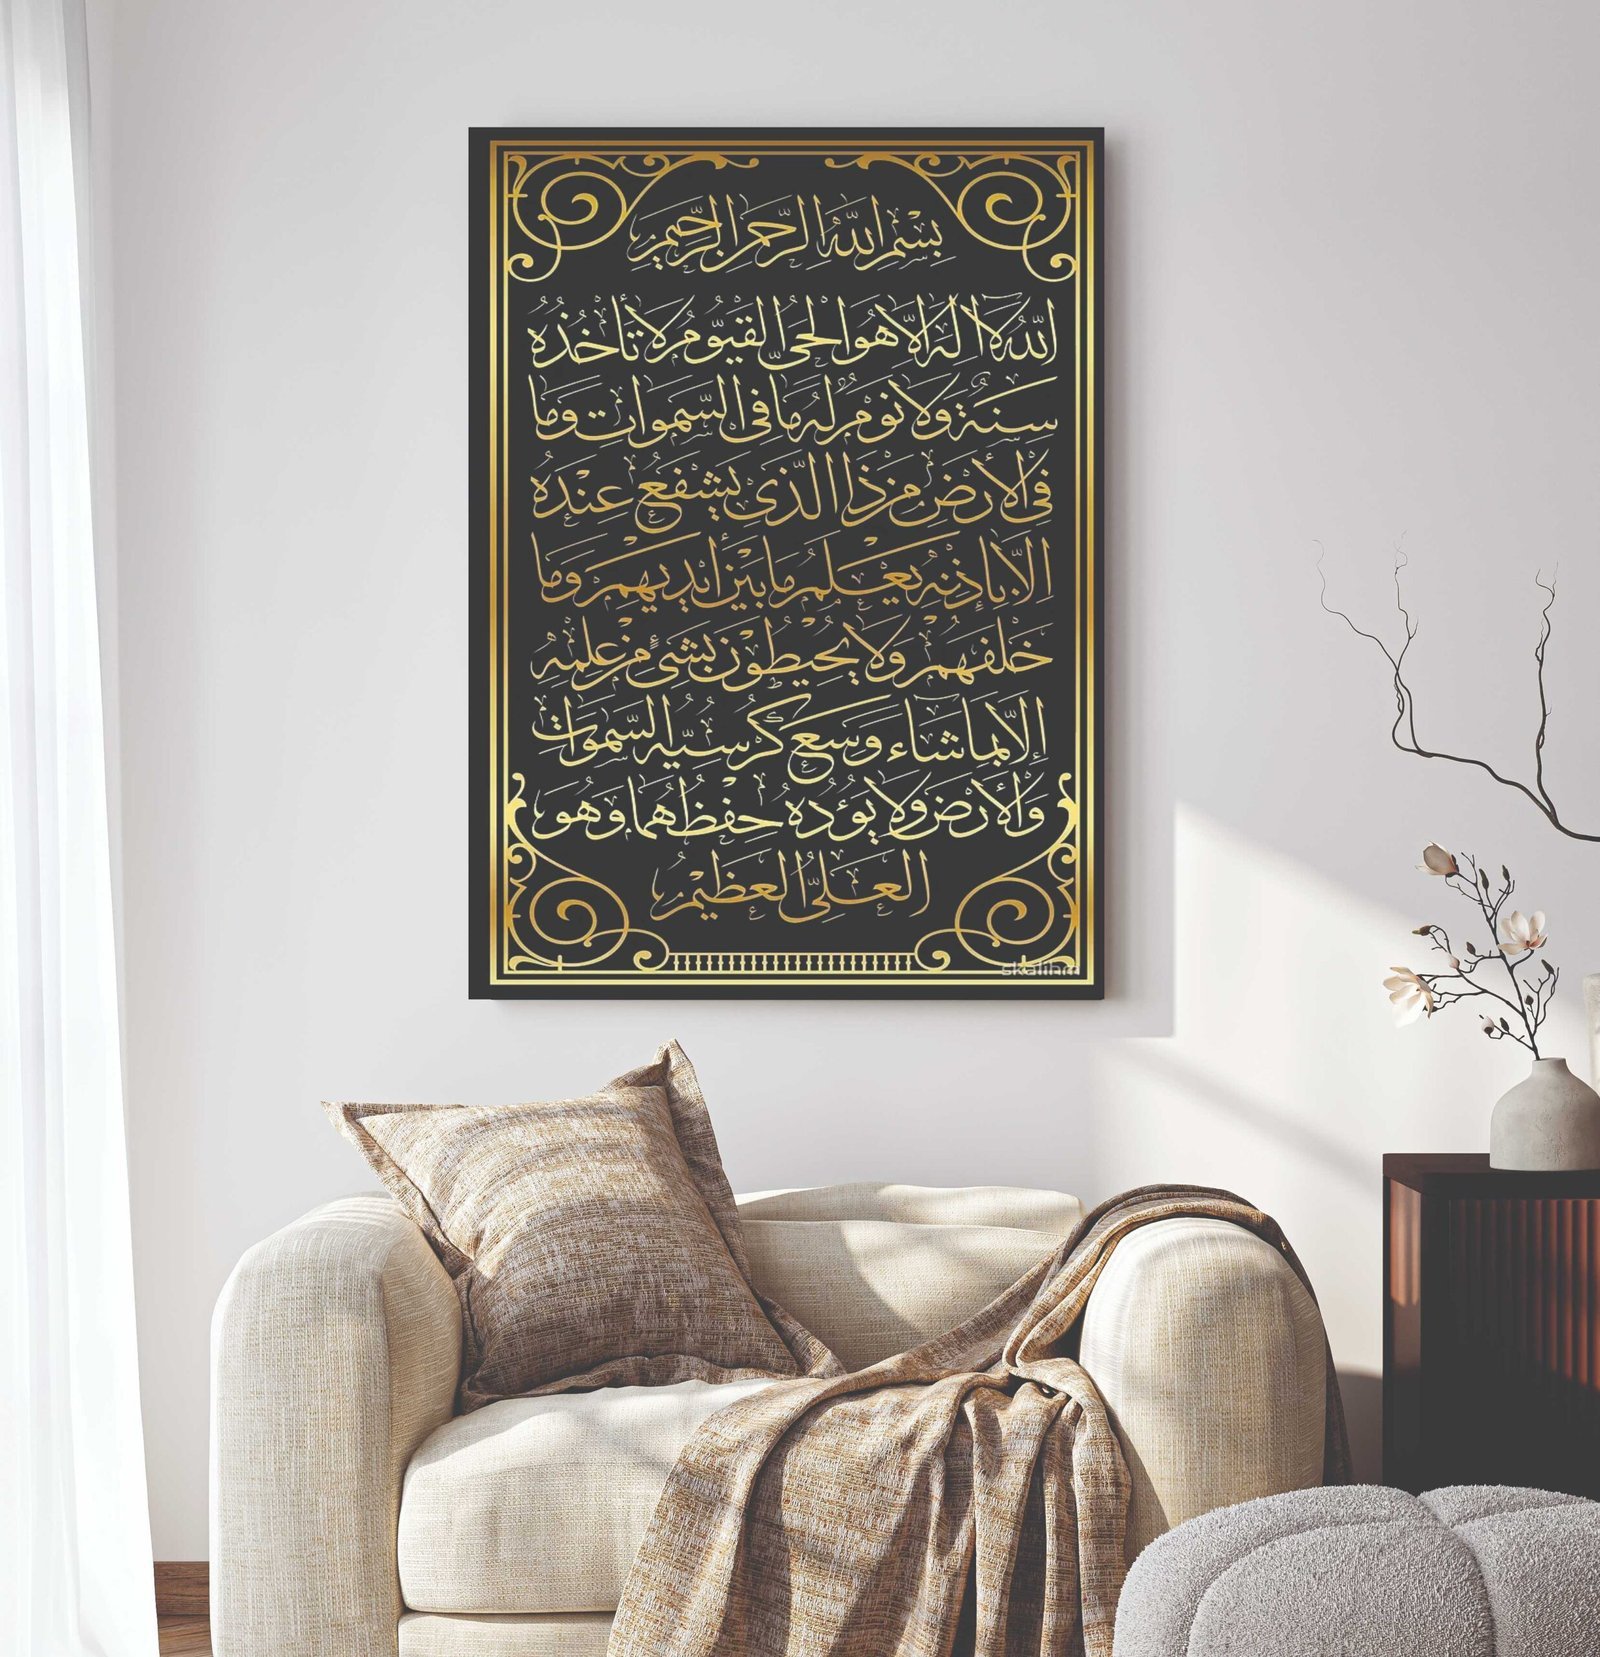 بِسْمِ اللَّهِ الرَّحْمَنِ الرَّحِيمِ
اللَّهُ لَا إِلَهَ إِلَّا هُوَ الْحَيُّ الْقَيُّومُ لَا تَأْخُذُهُ
سِنَةٌ وَلَا نَوْمٌ لَهُ مَا فِي السَّمَوَاتِ وَمَا
فِي الْأَرْضِ مَنْ ذَا الَّذِي يَشْفَعُ عِنْدَهُ
إِلَّا بِإِذْنِهِ يَعْلَمُ مَا بَيْنَ أَيْدِيهِمْ وَمَا
خَلْفَهُمْ وَلَا يُحِيطُونَ بِشَيْءٍ مِنْ عِلْمِهِ
إِلَّا بِمَا شَاءَ وَسِعَ كُرْسِيُّهُ السَّمَوَاتِ
وَالْأَرْضَ وَلَا يَؤُدُهُ حِفْظُهُمَا وَهُوَ
الْعَلِيُّ الْعَظِيمُ
skalihm